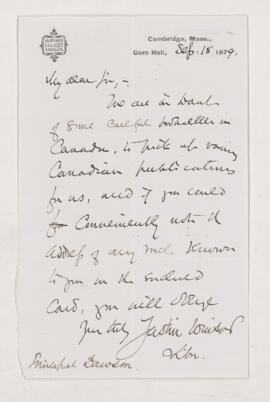 HARVARD
COLLEGE
LIBRARY
Cambridge, Mass.,
Gore Hall, Sep. 18 1879.
My dear Sir, -
We are in want
of some careful bookseller in
Canada, to pick up various
Canadian publications
for us, and if you could
conveniently note the
address of any such known
to you on the enclosed
card, you will oblige
Yours truly Justin Winsor
Libn.
Principal Dawson.